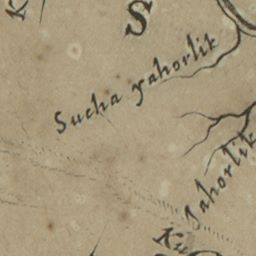 K
S
Sucha yahorlik
Jahorlik
Ku